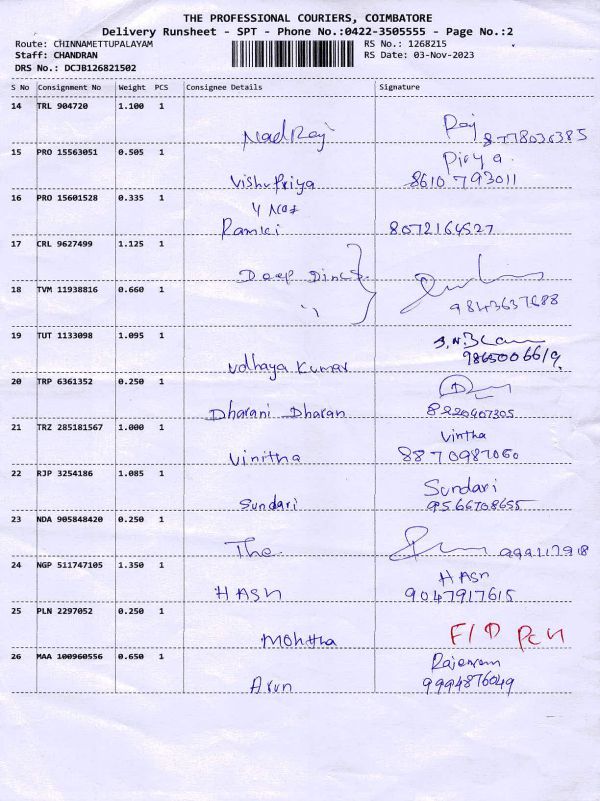 THE PROFESSIONAL COURIERS, COIMBATORE
Delivery Runsheet - SPT - Phone No.:0422-3505555 - Page No.:2
Route: CHINNAMETTUPALAYAM RS No.: 1268215
Staff: CHANDRAN RS Date: 03-Nov-2023
DRS No.: DCJB126821502
S No Consignment No Weight PCS Consignee Details Signature
14 TRL 904720 1.100 1
Raj
8778036385
15 PRO 15563051 0.505 1
Priya
Vishu Priya 8610793011
16 PRO 15601528 0.335 1
Ramki 8072164527
17 CRL 9627499 1.125 1
Deep
18 TVM 11938816 0.660 1
9843637688
19 TUT 1133098 1.095 1
Udhaya Kumar 9865006619
20 TRP 6361352 0.250 1
Dharani Dharan 8220407305
21 TRZ 285181567 1.000 1
Vintha
Vinitha 8870987060
22 RJP 3254186 1.085 1
Sundari
Sundari 9566708655
23 NDA 905848420 0.250 1
The
24 NGP 511747105 1.350 1
HASH
HASH 9047917615
25 PLN 2297052 0.250 1
F/D PCN
26 MAA 100960556 0.650 1
Arun 9994876049